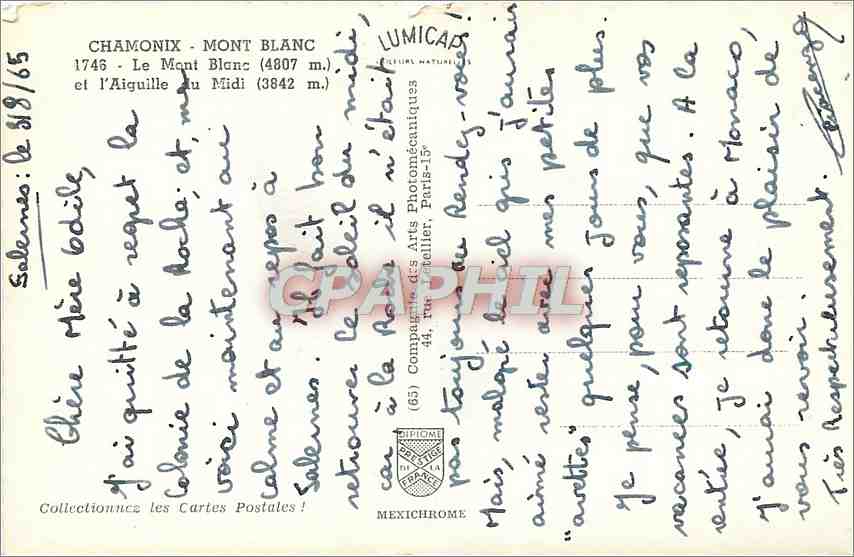 CHAMONIX - MONT BLANC
1746 - Le Mont Blanc (4807 m.)
et l'Aiguille du Midi (3842 m.)
LUMICAP
COULEURS NATURELLES
(65) Compagnie des Arts Photomécaniques
44, rue Letellier, Paris-15e
DIPLOME
PRESTIGE
DE LA
FRANCE
MEXICHROME
Collectionnez les Cartes Postales !
CPAPHIL
Salernes : le 31/8/65
Chère Mère Odile,
J'ai quitté à regret la
Colonie de la Roche, et, me
voici maintenant au
calme et au repos à
Salernes. Il fait bon
retrouver le soleil du midi,
car à la Roche il n'était
pas toujours au Rendez-vous!
Mais, malgré le ciel gris j'aurais
aimé rester avec mes petites
"avettes" quelques jours de plus.
Je pense, pour vous, que vos
vacances sont reposantes. A la
rentrée, je retourne à Monaco,
J'aurai donc le plaisir de
vous revoir.
Très Respectueusement.